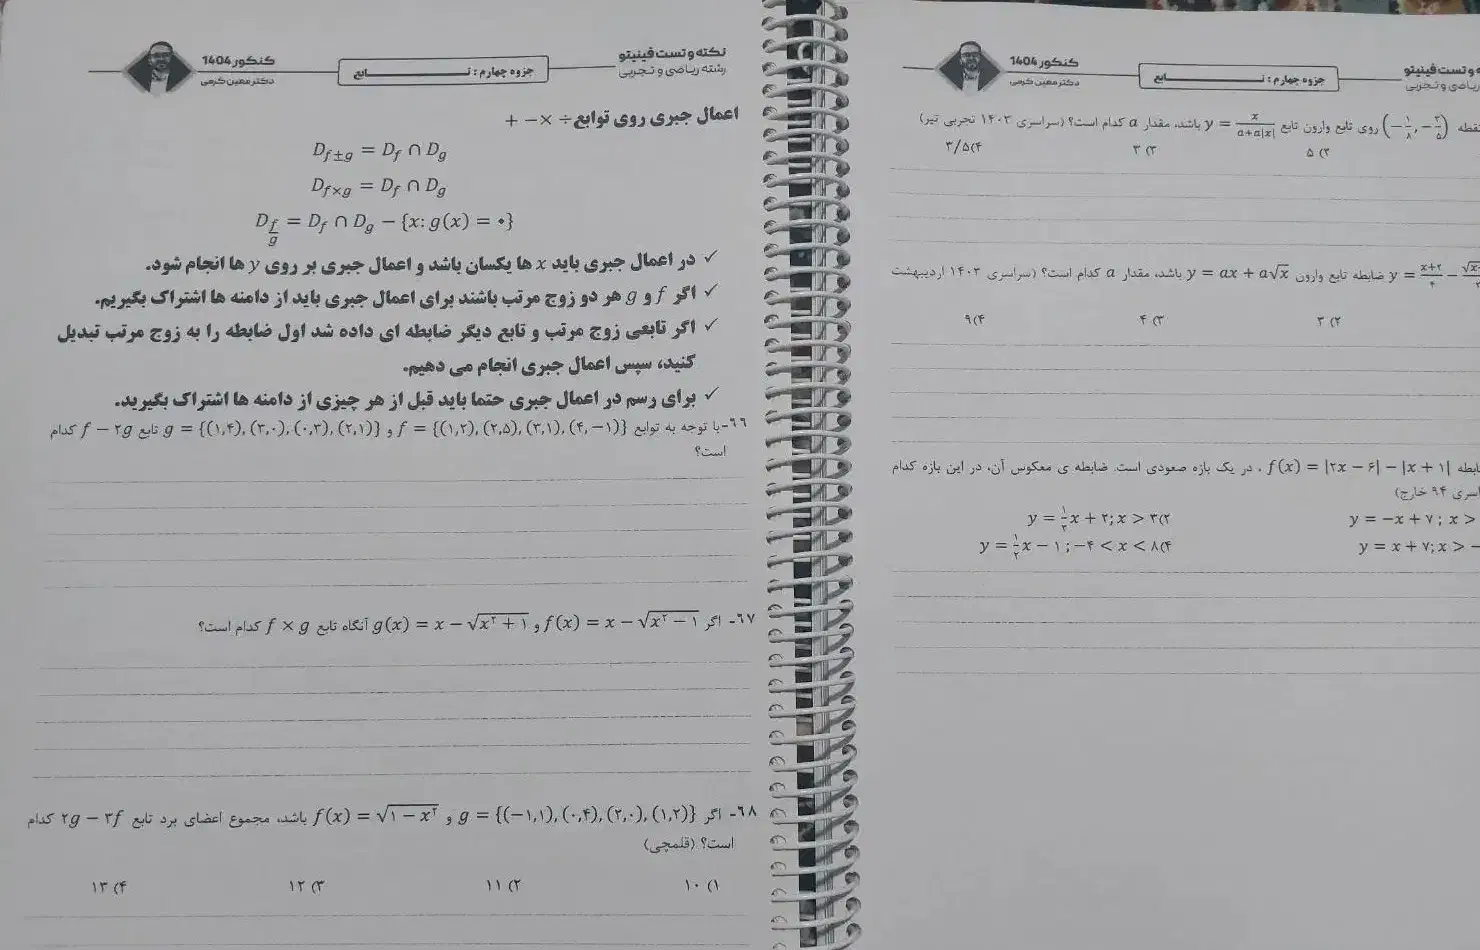 نکته و تست فینیتو
رشته ریاضی و تجربی
جزوه چهارم : تـــــــابع
کنکور 1404
دکتر معین کرمی
اعمال جبری روی توابع ÷ × − +
D_{f±g} = D_f ∩ D_g
D_{f×g} = D_f ∩ D_g
D_{f/g} = D_f ∩ D_g − {x: g(x) = ۰}
✓ در اعمال جبری باید x ها یکسان باشد و اعمال جبری بر روی y ها انجام شود.
✓ اگر f و g هر دو زوج مرتب باشند برای اعمال جبری باید از دامنه ها اشتراک بگیریم.
✓ اگر تابعی زوج مرتب و تابع دیگر ضابطه ای داده شد اول ضابطه را به زوج مرتب تبدیل
کنید، سپس اعمال جبری انجام می دهیم.
✓ برای رسم در اعمال جبری حتما باید قبل از هر چیزی از دامنه ها اشتراک بگیرید.
۶۶- با توجه به توابع f = {(۱,۲), (۲,۵), (۳,۱), (۴,−۱)} و g = {(۱,۴), (۳,۰), (۰,۳), (۲,۱)} تابع f − ۲g کدام
است؟
۶۷- اگر f(x) = x − √(x² − ۱) و g(x) = x − √(x² + ۱) آنگاه تابع f × g کدام است؟
۶۸- اگر g = {(−۱,۱), (۰,۴), (۲,۰), (۱,۲)} و f(x) = √(۱ − x²) باشد، مجموع اعضای برد تابع ۲g − ۳f کدام
است؟ (قلمچی)
۱) ۱۰ ۲) ۱۱ ۳) ۱۲ ۴) ۱۳
و تست فینیتو
ریاضی و تجربی
جزوه چهارم : تـــــــابع
کنکور 1404
دکتر معین کرمی
نقطه (−۱/۸, −۲/۵) روی تابع وارون تابع y = x/(a+a|x|) باشد، مقدار a کدام است؟ (سراسری ۱۴۰۳ تجربی تیر)
۲) ۵ ۳) ۳ ۴) ۳/۵
y = (x+۲)/۴ − ضابطه تابع وارون y = ax + a√x باشد، مقدار a کدام است؟ (سراسری ۱۴۰۳ اردیبهشت
۲) ۳ ۳) ۴ ۴) ۹
f(x) = |۲x − ۶| − |x + ۱| ، در یک بازه صعودی است. ضابطه ی معکوس آن، در این بازه کدام
۹۴ خارج)
y = −x + ۷ ; x > ۲) y = ½x + ۲; x > ۳
y = x + ۷; x > − ۴) y = ½x − ۱ ; −۴ < x < ۸